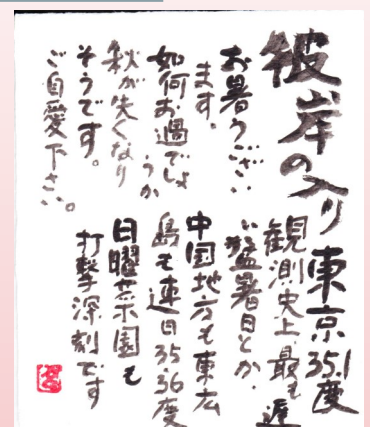 彼岸の入り東京35.1度
観測史上最も遅
い猛暑日とか.
中国地方も東広
島も連日35.36度
日曜菜園も
打撃深刻です
お暑うござい
ます.
如何お過でしょ
うか
秋が失くなり
そうです。
ご自愛下さい。